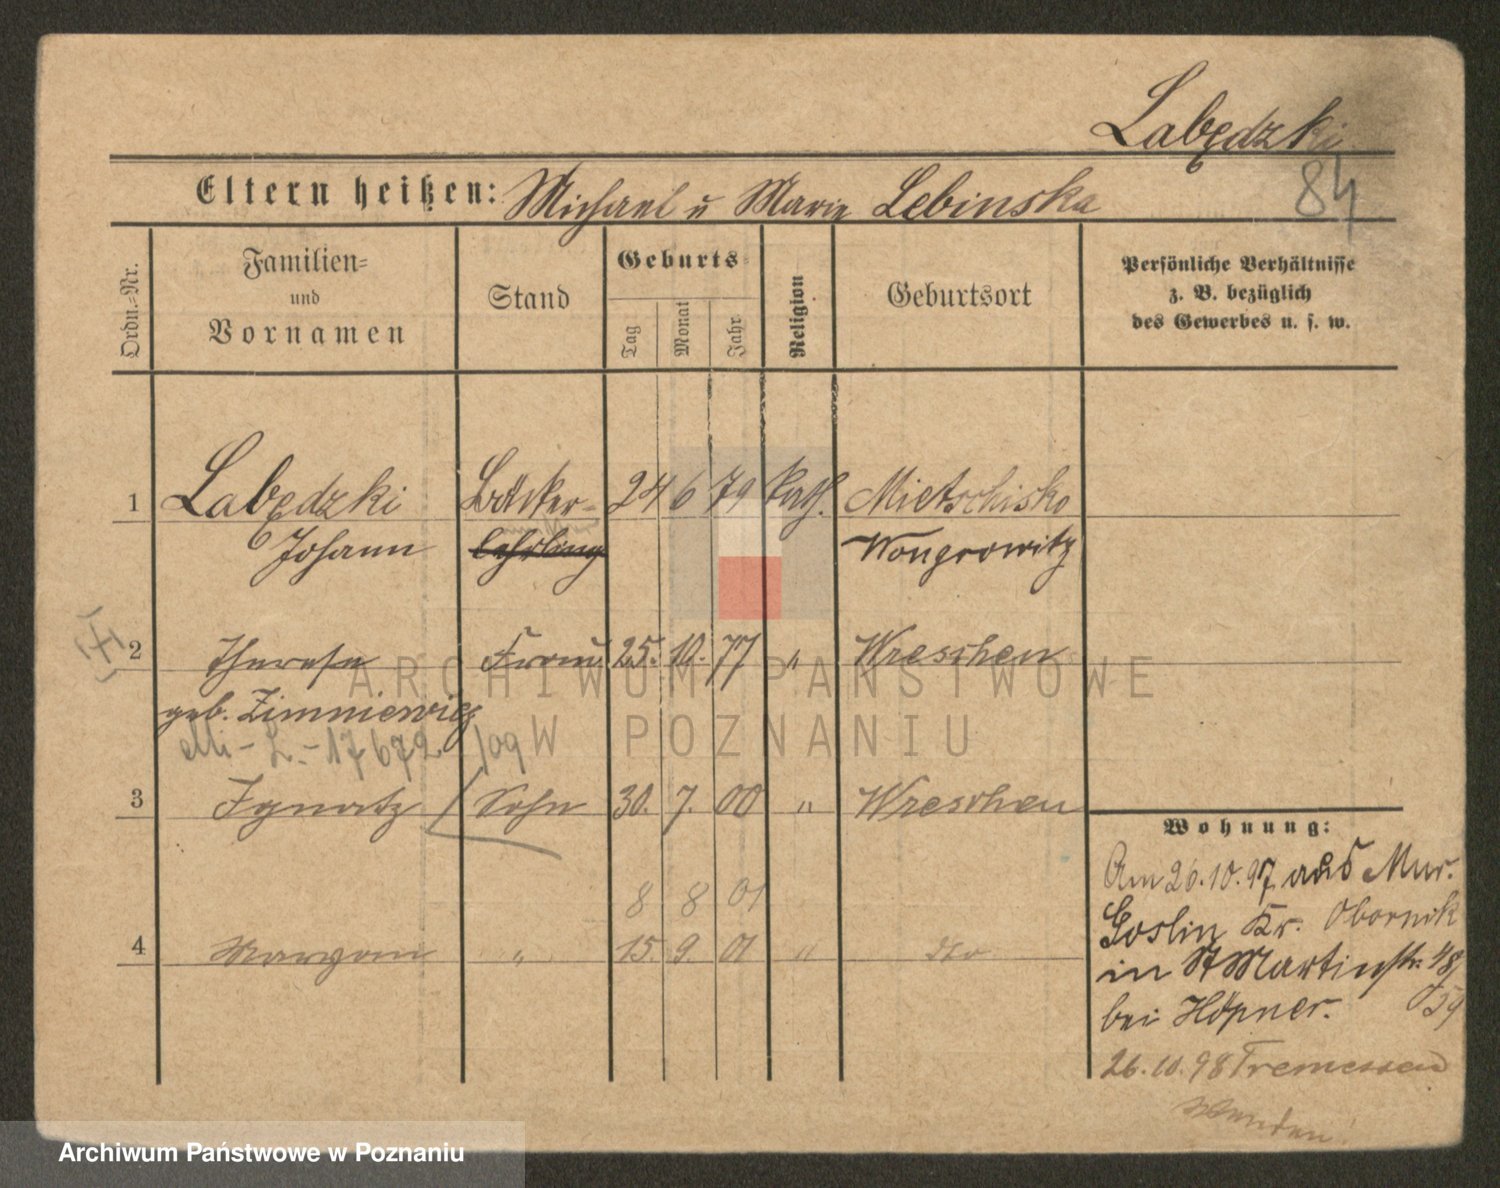 Labędzki
84
Eltern heißen: Michael u Marie Lebinska
Ordn.-Nr.
Familien-
und
Vornamen
Stand
Geburts-
Tag
Monat
Jahr
Religion
Geburtsort
Persönliche Verhältnisse
z. B. bezüglich
des Gewerbes u. s. w.
1 Labędzki Bäcker- 24 6 79 kath. Mietschisko
Johann lehrling Wongrowitz
2 Therese Frau 25. 10. 77 " Wreschen
geb. Zimniewicz
L.-17672/09
3 Ignatz Sohn 30. 7. 00 " Wreschen
8 8 01
4 " 15. 9. 01 " dto
Wohnung:
Am 26.10.97 aus Mur.
Goslin Kr. Obornik
in St Martinstr. 48/
bei Höpner. 59
26.10.98 Tremessen
ARCHIWUM PAŃSTWOWE
W POZNANIU
Archiwum Państwowe w Poznaniu